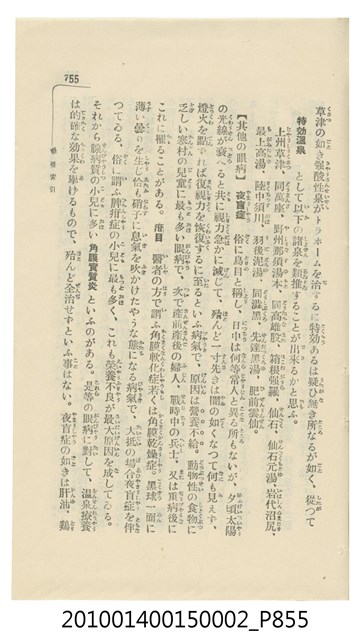 草津の如き强酸性泉がトラホームを治するに特効あるは疑ひ無き所なるが如く、從つて
特効溫泉 として以下の諸泉を類推することが出來るかと思ふ。
上州草津、同萬座、野州那須湯本、同高雄股、箱根强羅、仙石、仙石元湯、岩代沼尻、
最上高湯、陸中須川、羽後泥湯、同澁黑、先達黑湯、肥前雲仙。
【其他の眼病】 夜盲症 俗に鳥目と稱し、日中は何等常人と異る所もないが、夕頃太陽
の光線が衰へると共に視力急かに減じて、殆んど一寸先きは闇の如くなつて何も見えず、
燈火を點ずれば復視力を恢復するに至るといふ病氣で、原因は營養不給。動物性の食物に
乏しい寒村の兒童に最も多い眼病で、次で產前產後の婦人、戰時中の兵士、又は重病後に
これに罹ることがある。疳目 醫者の方で謂ふ角膜軟化症若くは角膜乾燥症。黑球一面に
薄い曇りを生じ恰も硝子に息氣を吹かけたやうな態になる病氣で、大抵の場合夜盲症を伴
つてゐる。俗に謂ふ脾疳症の小兒に最も多く、これも榮養不良が最大原因を成してゐる。
それから腺病質の小兒に多い 角膜實質炎 といふのがある。是等の眼病に對して、溫泉療養
は的確な効果を擧げるもので、殆んど全治せずといふ事はない。夜盲症の如きは肝油、鷄
755
索引
201001400150002_P855